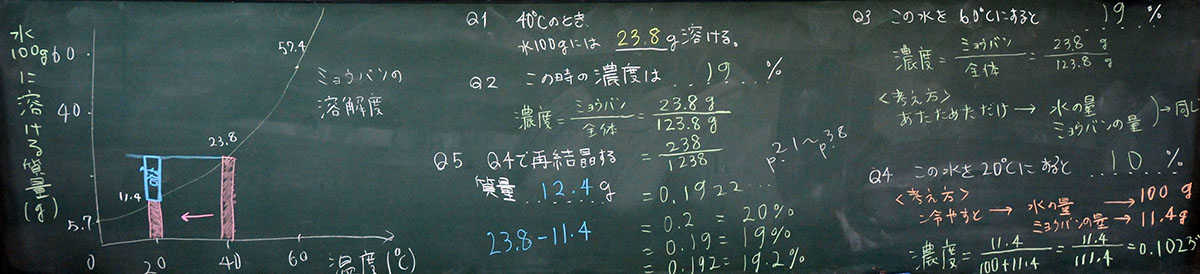 水100gに溶ける質量(g)
60
40
5.7
0
20
40
60
温度(℃)
57.4
23.8
11.4
ミョウバンの
溶解度
Q1 40℃のとき
水100gには 23.8g溶ける。
Q2 この時の濃度は...19...%
濃度=ミョウバン/全体=23.8g/123.8g
=238/1238
=0.1922...
=0.2=20%
=0.19=19%
=0.192=19.2%
p.21~p.38
Q5 Q4で再結晶する
質量...12.4g
23.8-11.4
Q3 この水を60℃にすると...19...%
濃度=ミョウバン/全体=23.8g/123.8g
<考え方>
あたためただけ→水の量
ミョウバンの量)→同じ
Q4 この水を20℃にすると...10...%
<考え方>
冷やすと→水の量→100g
ミョウバンの量→11.4g
濃度=11.4/100+11.4=11.4/111.4=0.1023